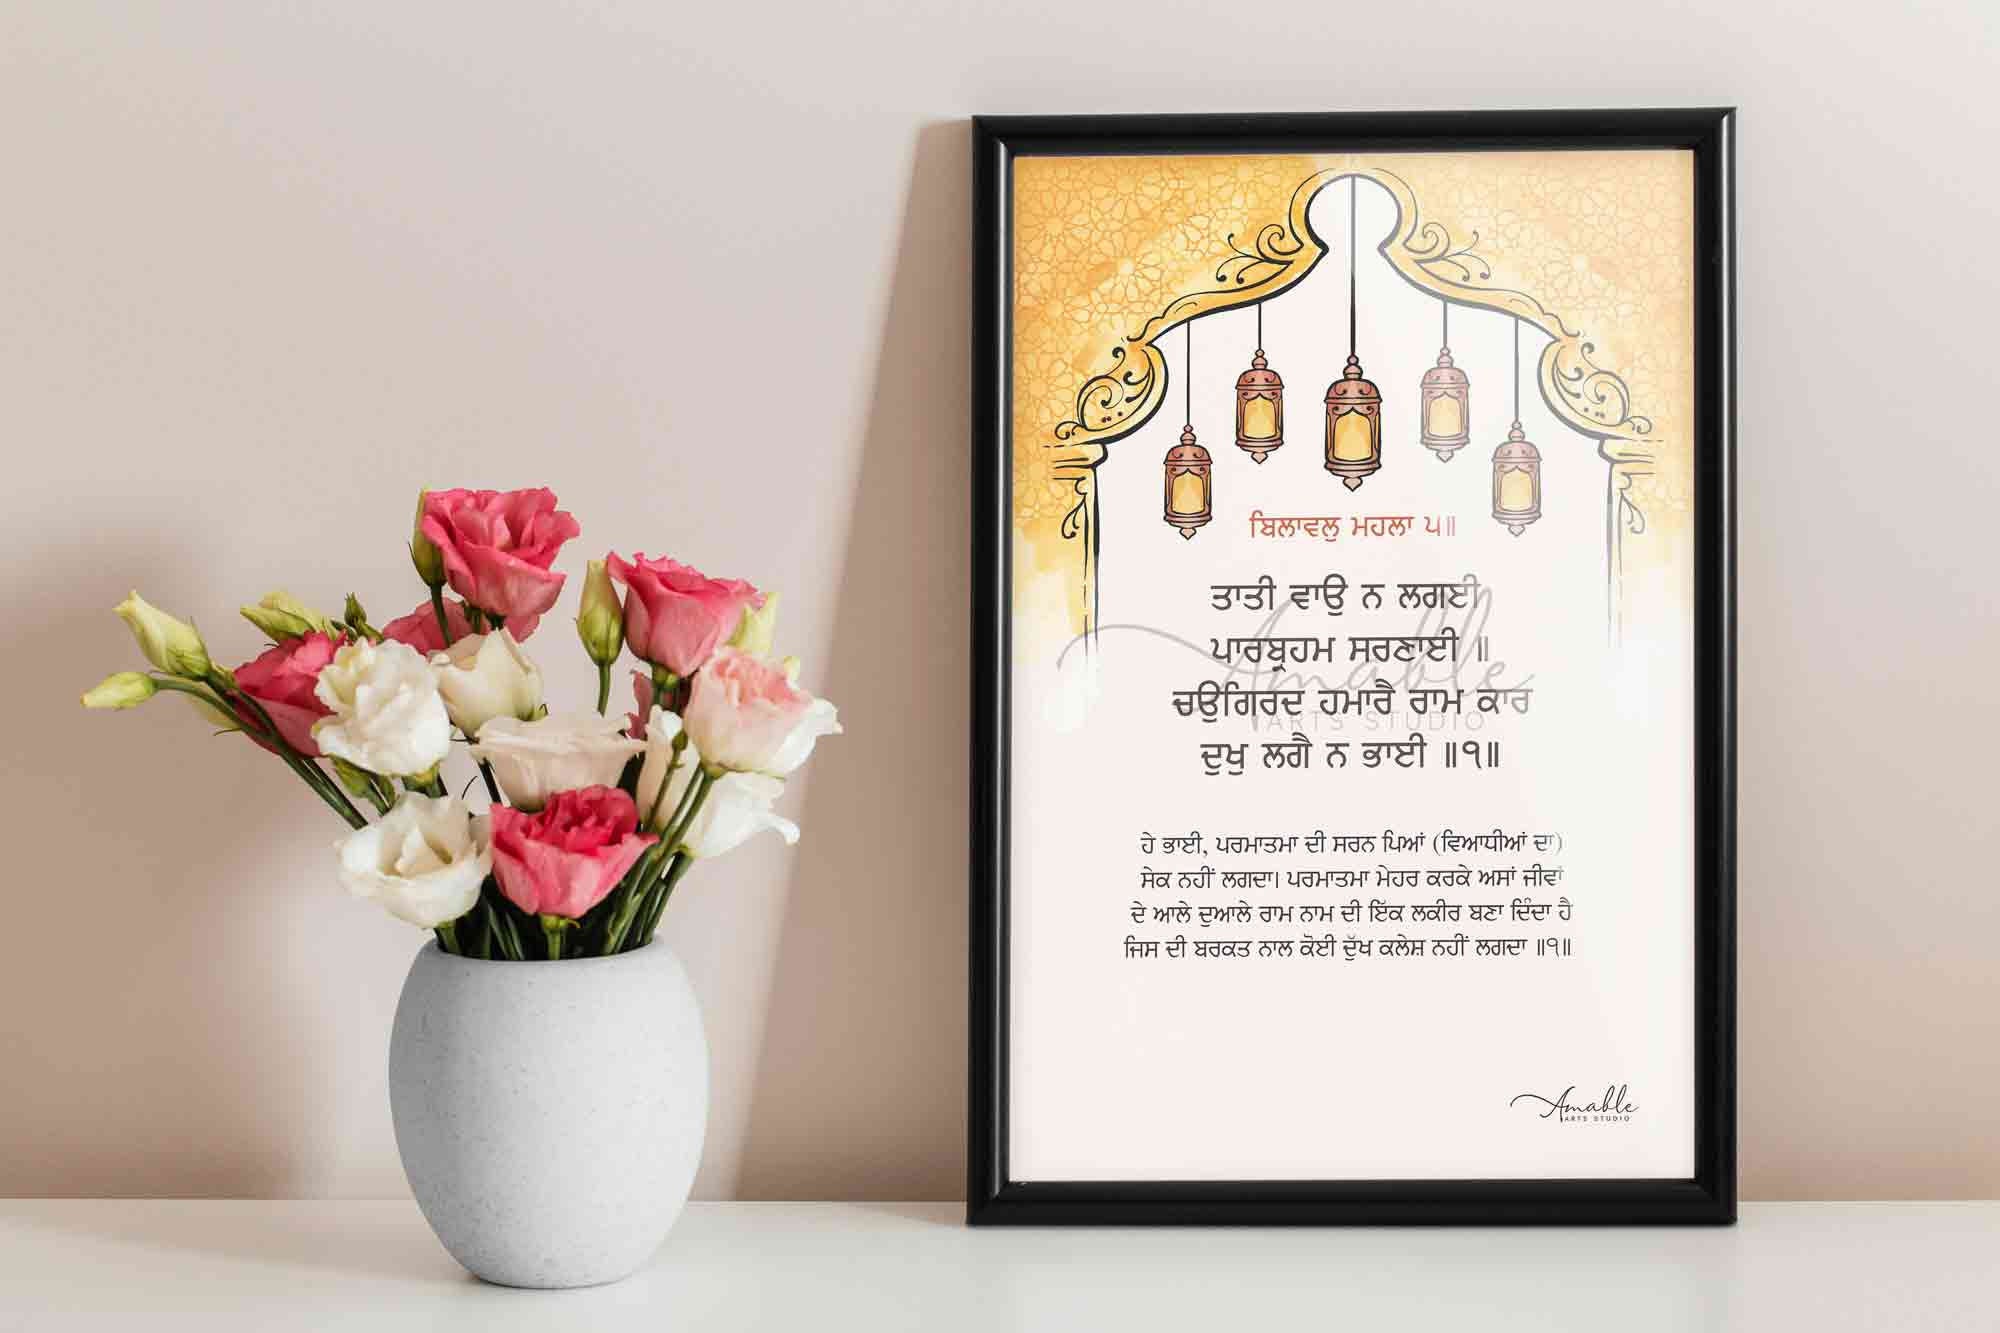 ਬਿਲਾਵਲੁ ਮਹਲਾ ੫॥
ਤਾਤੀ ਵਾਉ ਨ ਲਗਈ
ਪਾਰਬ੍ਰਹਮ ਸਰਣਾਈ ॥
ਚਉਗਿਰਦ ਹਮਾਰੈ ਰਾਮ ਕਾਰ
ਦੁਖੁ ਲਗੈ ਨ ਭਾਈ ॥੧॥
Amable
ARTS STUDIO
ਹੇ ਭਾਈ, ਪਰਮਾਤਮਾ ਦੀ ਸਰਨ ਪਿਆਂ (ਵਿਆਧੀਆਂ ਦਾ)
ਸੇਕ ਨਹੀਂ ਲਗਦਾ। ਪਰਮਾਤਮਾ ਮੇਹਰ ਕਰਕੇ ਅਸਾਂ ਜੀਵਾਂ
ਦੇ ਆਲੇ ਦੁਆਲੇ ਰਾਮ ਨਾਮ ਦੀ ਇੱਕ ਲਕੀਰ ਬਣਾ ਦਿੰਦਾ ਹੈ
ਜਿਸ ਦੀ ਬਰਕਤ ਨਾਲ ਕੋਈ ਦੁੱਖ ਕਲੇਸ਼ ਨਹੀਂ ਲਗਦਾ ॥੧॥
Amable
ARTS STUDIO